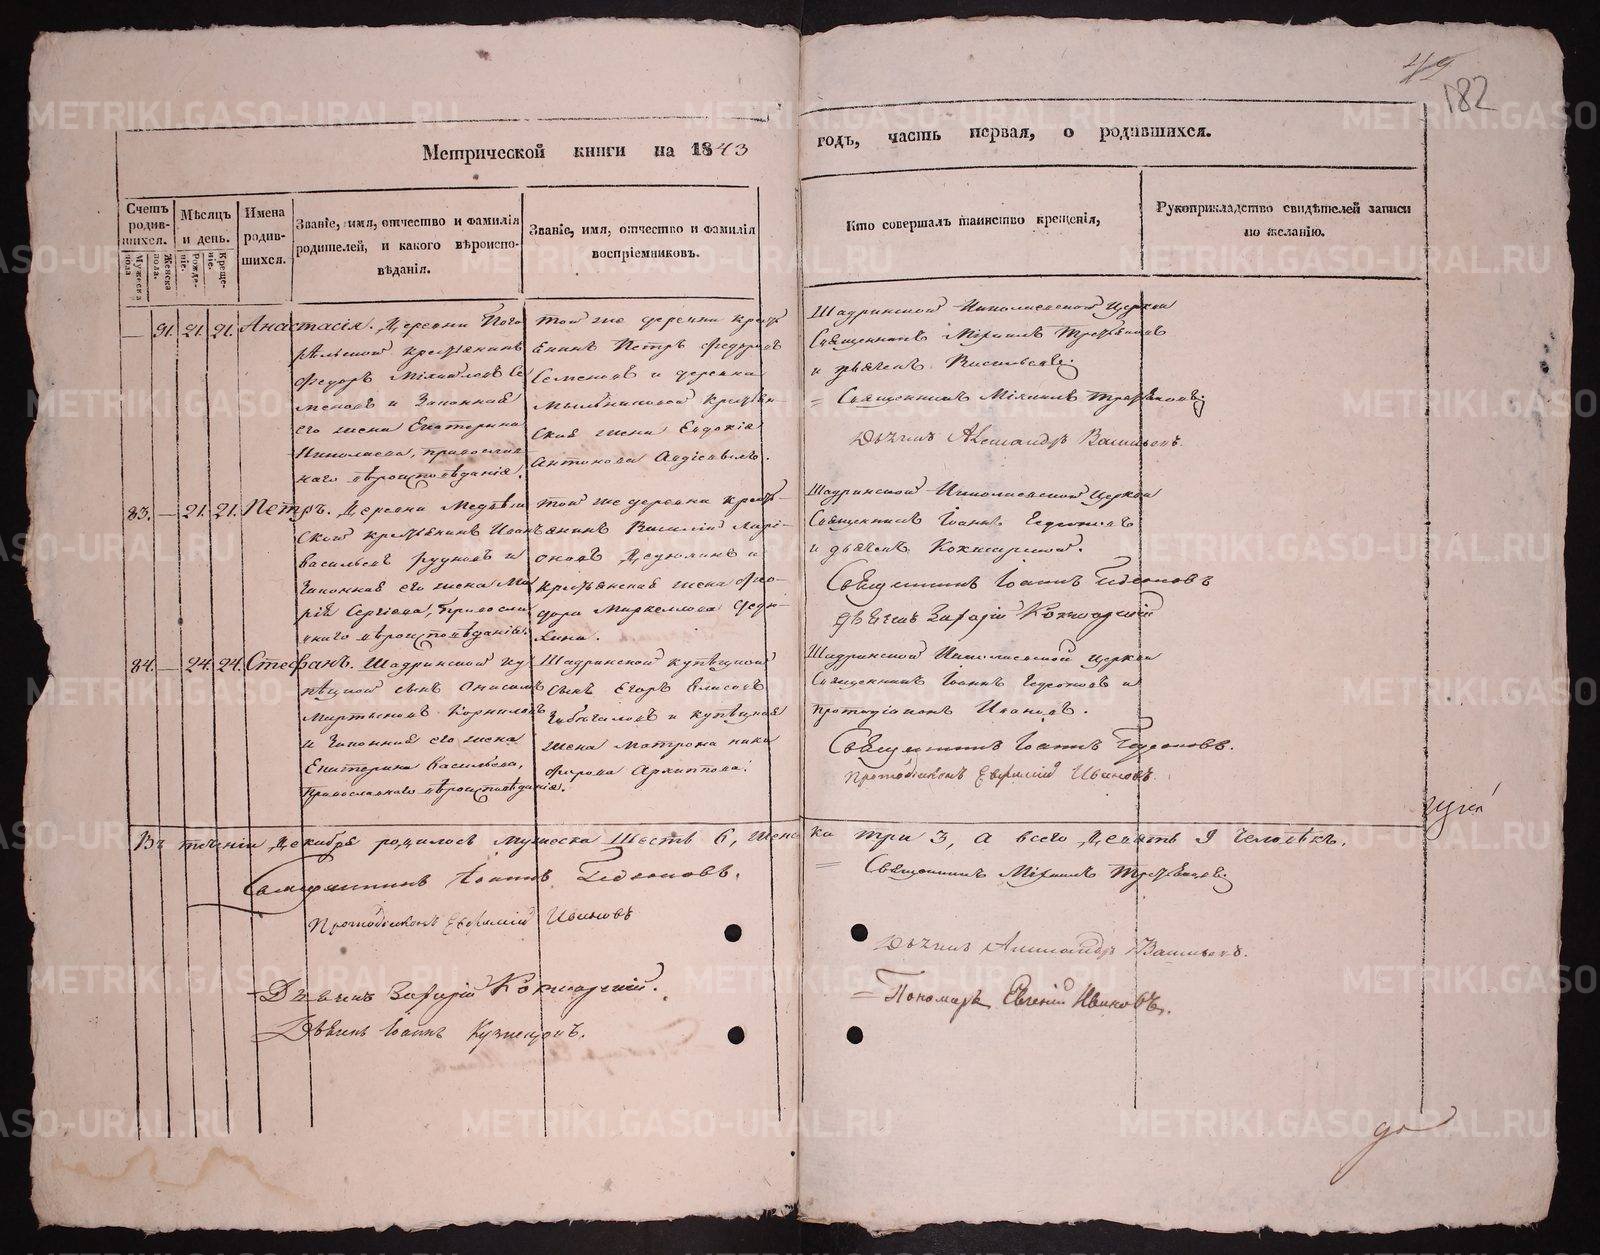 182
Метрической книги на 1843
годъ, часть первая, о родившихся.
Счетъ родив-
шихся.
Мужеска пола
Женска пола.
Мѣсяцъ
и день.
Рожде-
ніе.
Креще-
ніе.
Имена
родив-
шихся.
Званіе, имя, отчество и фамилія
родителей, и какого вѣроиспо-
вѣданія.
Званіе, имя, отчество и фамилія
воспріемниковъ.
Кто совершалъ таинство крещенія,
Рукоприкладство свидѣтелей записи
по желанію.
— 91. 21. 21. Анастасія.
Деревни
крестьянинъ
Федоръ Михайловъ Се
меновъ и Законная
его жена Екатерина
Николаева, православ
наго вѣроисповѣданія.
той же деревни кресть
янинъ Петръ Федоровъ
Семеновъ и деревни
Мыльниковой крестьян-
ская жена Евдокія
Антонова
Шадринской Николаевской Церкви
Священникъ Михаилъ
и дьячекъ Васильевъ.
= Священникъ Михаилъ
Дьячекъ Александръ Васильевъ.
83. — 21. 21. Петръ.
Деревни
крестьянинъ Иванъ
Васильевъ Рудновъ и
Законная его жена Ма
рія Сергіева, Православ
наго вѣроисповѣданія.
той же деревни кресть-
янинъ Василій Ларі-
оновъ Дедюхинъ и
крестьянская жена Фео-
дора Маркеллова Дедю-
хина.
Шадринской Николаевской Церкви
Священникъ Іоаннъ Гедеоновъ
и дьячекъ Кокшарской.
Священникъ Іоаннъ Гедеоновъ
Дьячекъ Захарій Кокшарскій
84. — 24. 24. Стефанъ.
Шадринской ку
пецкой сынъ Онисимъ
Мартыновъ Корниловъ
и Законная его жена
Екатерина Васильева,
Православнаго вѣроисповѣданія.
Шадринской купецкой
сынъ Егоръ Елисѣевъ
и купецкая
жена Матрона Ники
форова Архипова.
Шадринской Николаевской церкви
Священникъ Іоаннъ Гедеоновъ и
протодіаконъ Ивановъ.
Священникъ Іоаннъ Гедеоновъ.
Протодіаконъ Евфимій Ивановъ.
Въ теченіи Декабря родилось мужеска Шесть 6, женс
ка три 3, а всего Девять 9 человѣкъ.
Священникъ Іоаннъ Гедеоновъ.
= Священникъ Михаилъ
Протодіаконъ Евфимій Ивановъ
Дьячекъ Александръ Васильевъ.
Дьячекъ Захарій Кокшарскій.
= Пономарь Евгеній Ивановъ.
Дьячекъ Іоаннъ Кузнецовъ.
METRIKI.GASO-URAL.RU